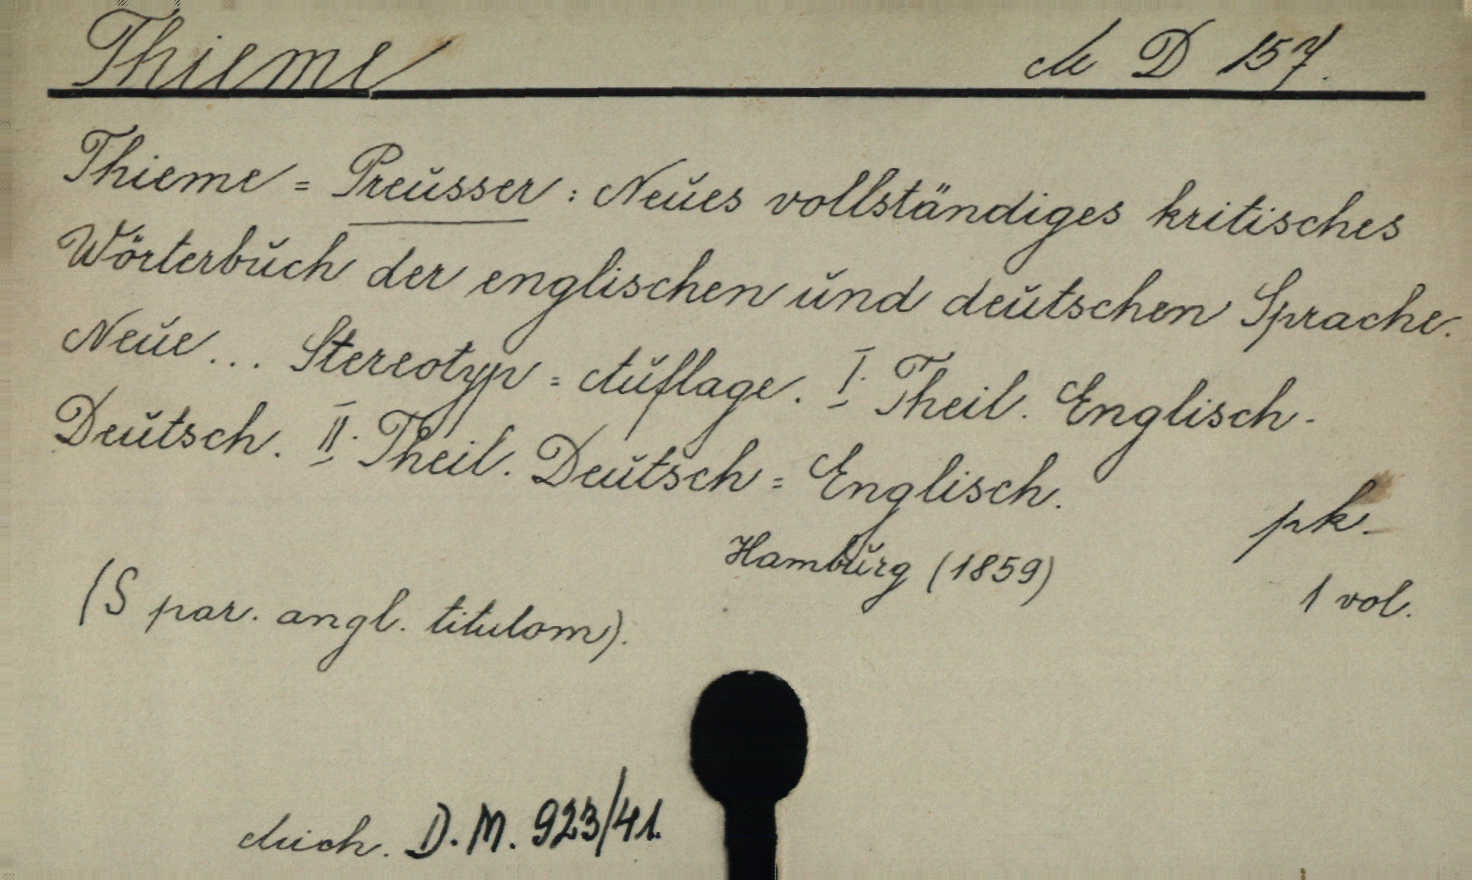 Thieme
M D 157.
Thieme = Preŭsser : Neŭes vollständiges kritisches
Wörterbŭch der englischen ŭnd deŭtschen Sprache.
Neŭe... Stereotyp = Aŭflage. I. Theil. Englisch-
Deŭtsch. II. Theil. Deŭtsch = Englisch.
Hambŭrg (1859)
pk-
1 vol.
(S par. angl. titulom).
D. M. 923/41.